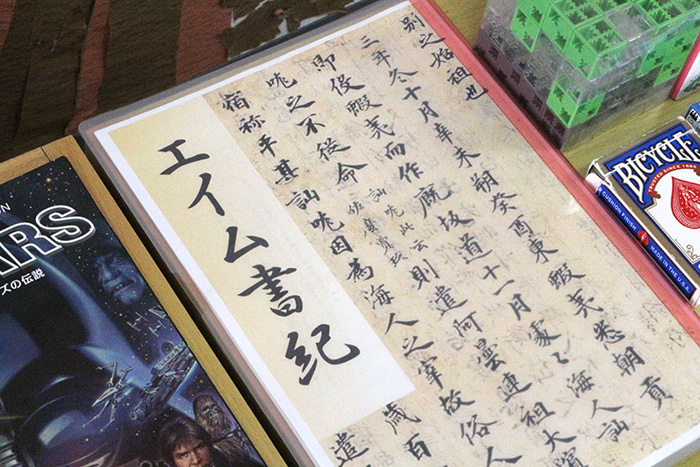 別之始祖也
三年冬十月辛未朔癸酉東蝦夷悉朝貢
即役蝦夷而作厩坂道十一月處々海人訕
哤之不從命訕哤此云佐麼賣玖則遣阿曇連祖大濱
宿祢平其訕哤因為海人之宰故俗人
歳百
遣
エイム書紀
ARS
ズの伝説
BICYCLE
CUSHION FINISH
MADE IN THE U.S.A.